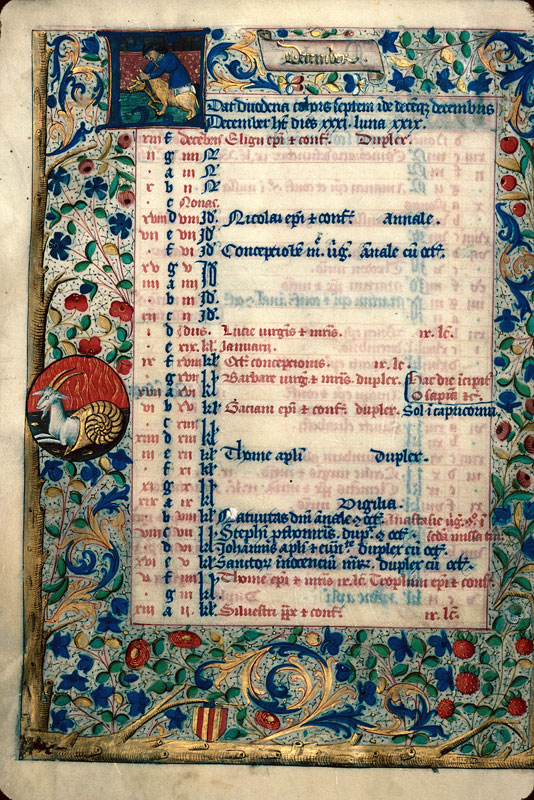 December.
Dat duodena cohors septem inde decemque decembris
December ht dies xxxi. luna xxix.
xiii f decembris Eligii epi & conf. Duplex.
ii g iiii N
a iii N
x b ii N
c Nonas.
xviii d viii Id. Nicolai epi & conf. Annale.
vii e vii Id
f vi Id Conceptio m. vg. Anale cu oct.
xv g v Id
iiii a iiii Id
b iii Id
xii c ii Id.
i d Idus. Lucie virgis & mris. ix. lc.
e xix kl Januarii.
ix f xviii kl Oct conceptionis ix. lc.
g xvii kl Barbare virg. & mris. duplex. Hac die incipit
xvii a xvi kl O sapia &c.
vi b xv kl Gaciani epi & conf. duplex. Sol i capricornu
c xiiii kl
xiiii d xiii kl
iii e xii kl Thome apli Duplex.
f xi kl
xi g x kl
xix a ix kl Vigilia.
b viii kl Nativitas dni anale & oct. Anastasie vg.
viii c vii kl Stephi pthomris. dup. & oct. seda missa
d vi kl Johannis apli & duplex cu oct.
xvi e v kl Sanctor inocenciu mr. duplex cu oct.
v f iiii kl Thome epi & mris ix. lc. Trophim epi & conf.
g iii kl
xiii a ii kl Silvestri pp & conf. ix. lc.